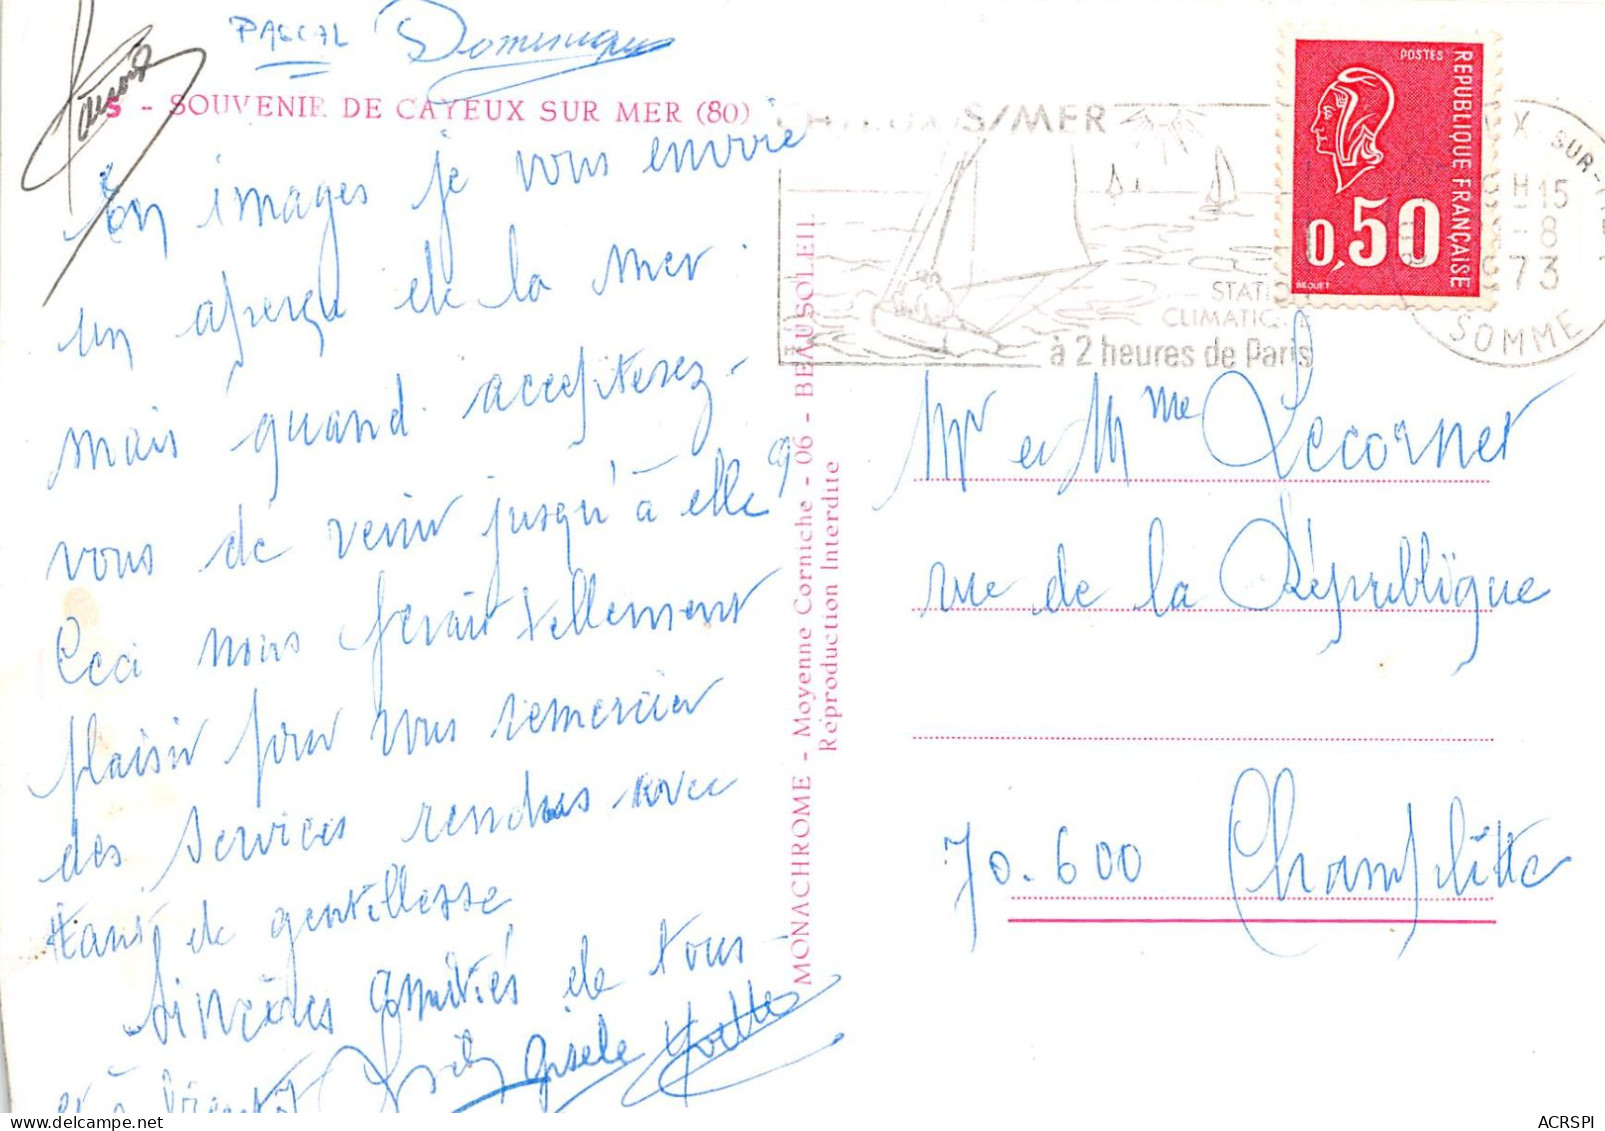 PASCAL Dominique
S - SOUVENIR DE CAYEUX SUR MER (80)
En images je vous envoie
un aperçu de la mer.
mais quand accepterez-
vous de venir jusqu'à elle ?
Ceci nous ferait tellement
plaisir pour vous remercier
des services rendus avec
tant de gentillesse
Sincères amitiés de tous -
et à bientôt
Gisele Yvette
MONACHROME - Moyenne Corniche - 06 - BEAUSOLEIL
Réproduction Interdite
S/MER
STATI
CLIMATIQ
à 2 heures de Paris
POSTES
REPUBLIQUE FRANÇAISE
0,50
BEQUET
X-SUR-MER
H15
-8
1973
SOMME
Mr et Mme Lecornet
rue de la République
70.600 Champlitte
ACRSPI